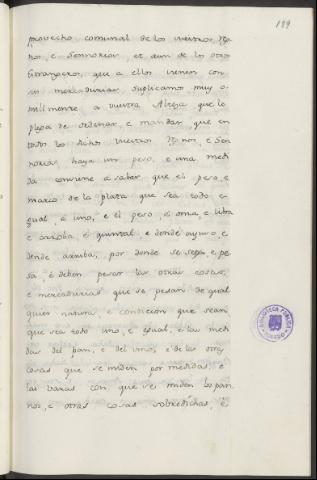 199
provecho comunal de los vuestros Reg
nos, e Sennorios, et aun de los otros
estrangeros, que a ellos vienen con
sus mercadurias suplicamos muy o-
millmente a vuestra Alteza que le
plega de ordenar, e mandar que en
todos los dichos vuestros Regnos, e Sen
norios haya un peso, e una medi
da conviene a saber, que el peso, e
marco de la plata que sea todo e-
gual e uno, e el peso e onza, e libra
e arroba e quintal e donde ayuso, e
dende arriba, por donde se pesa, e pe
sa, e deben pesar las otras cosas,
e mercadurias que se pesan de qual
quier natura, e condicion que sean
que sea todo uno, e egual, e las medi
das del pan, e del vino, e de las otras
cosas que se miden por medidas, e
las varas con que se miden los pan
nos, e otras cosas sobredichas, e
BIBLIOTECA PUBLICA
TOLEDO